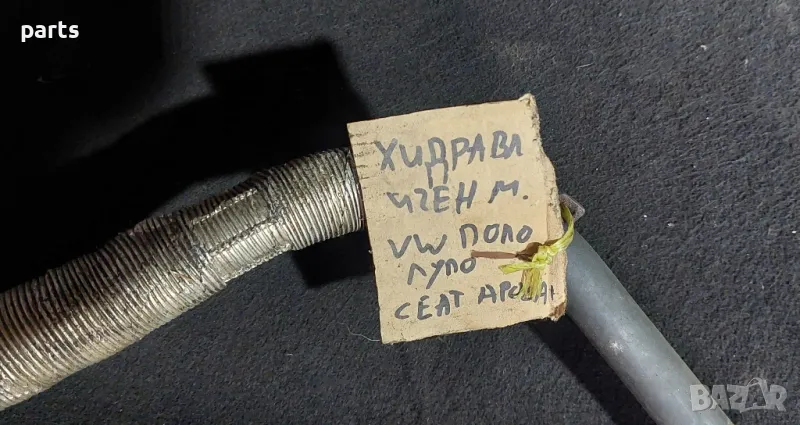 parts
ХИДРАВЛ
ИЧЕН М.
VW ПОЛО
ЛУПО
СЕАТ АРОСА
BAZAR